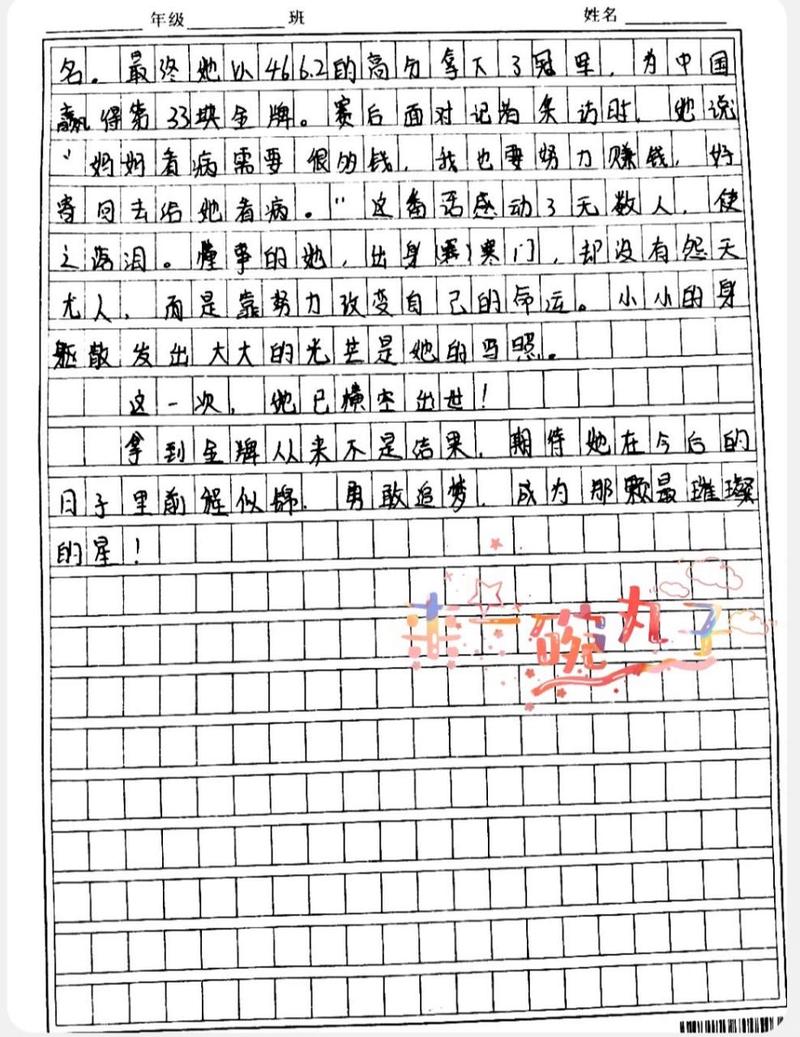 年级 班 姓名
名。最终她以466.2的高分拿下了冠军,为中国
赢得第33块金牌。赛后面对记者采访时,她说
“妈妈看病需要很多钱,我也要努力赚钱,好
寄回去给她看病。”这番话感动了无数人,使
之落泪。懂事的她,出身寒门,却没有怨天
尤人,而是靠努力改变自己的命运。小小的身
躯散发出大大的光芒是她的写照。
这一次,她已横空出世!
拿到金牌从来不是结果,期待她在今后的
日子里前程似锦,勇敢追梦,成为那颗最璀璨
的星!
一碗丸子